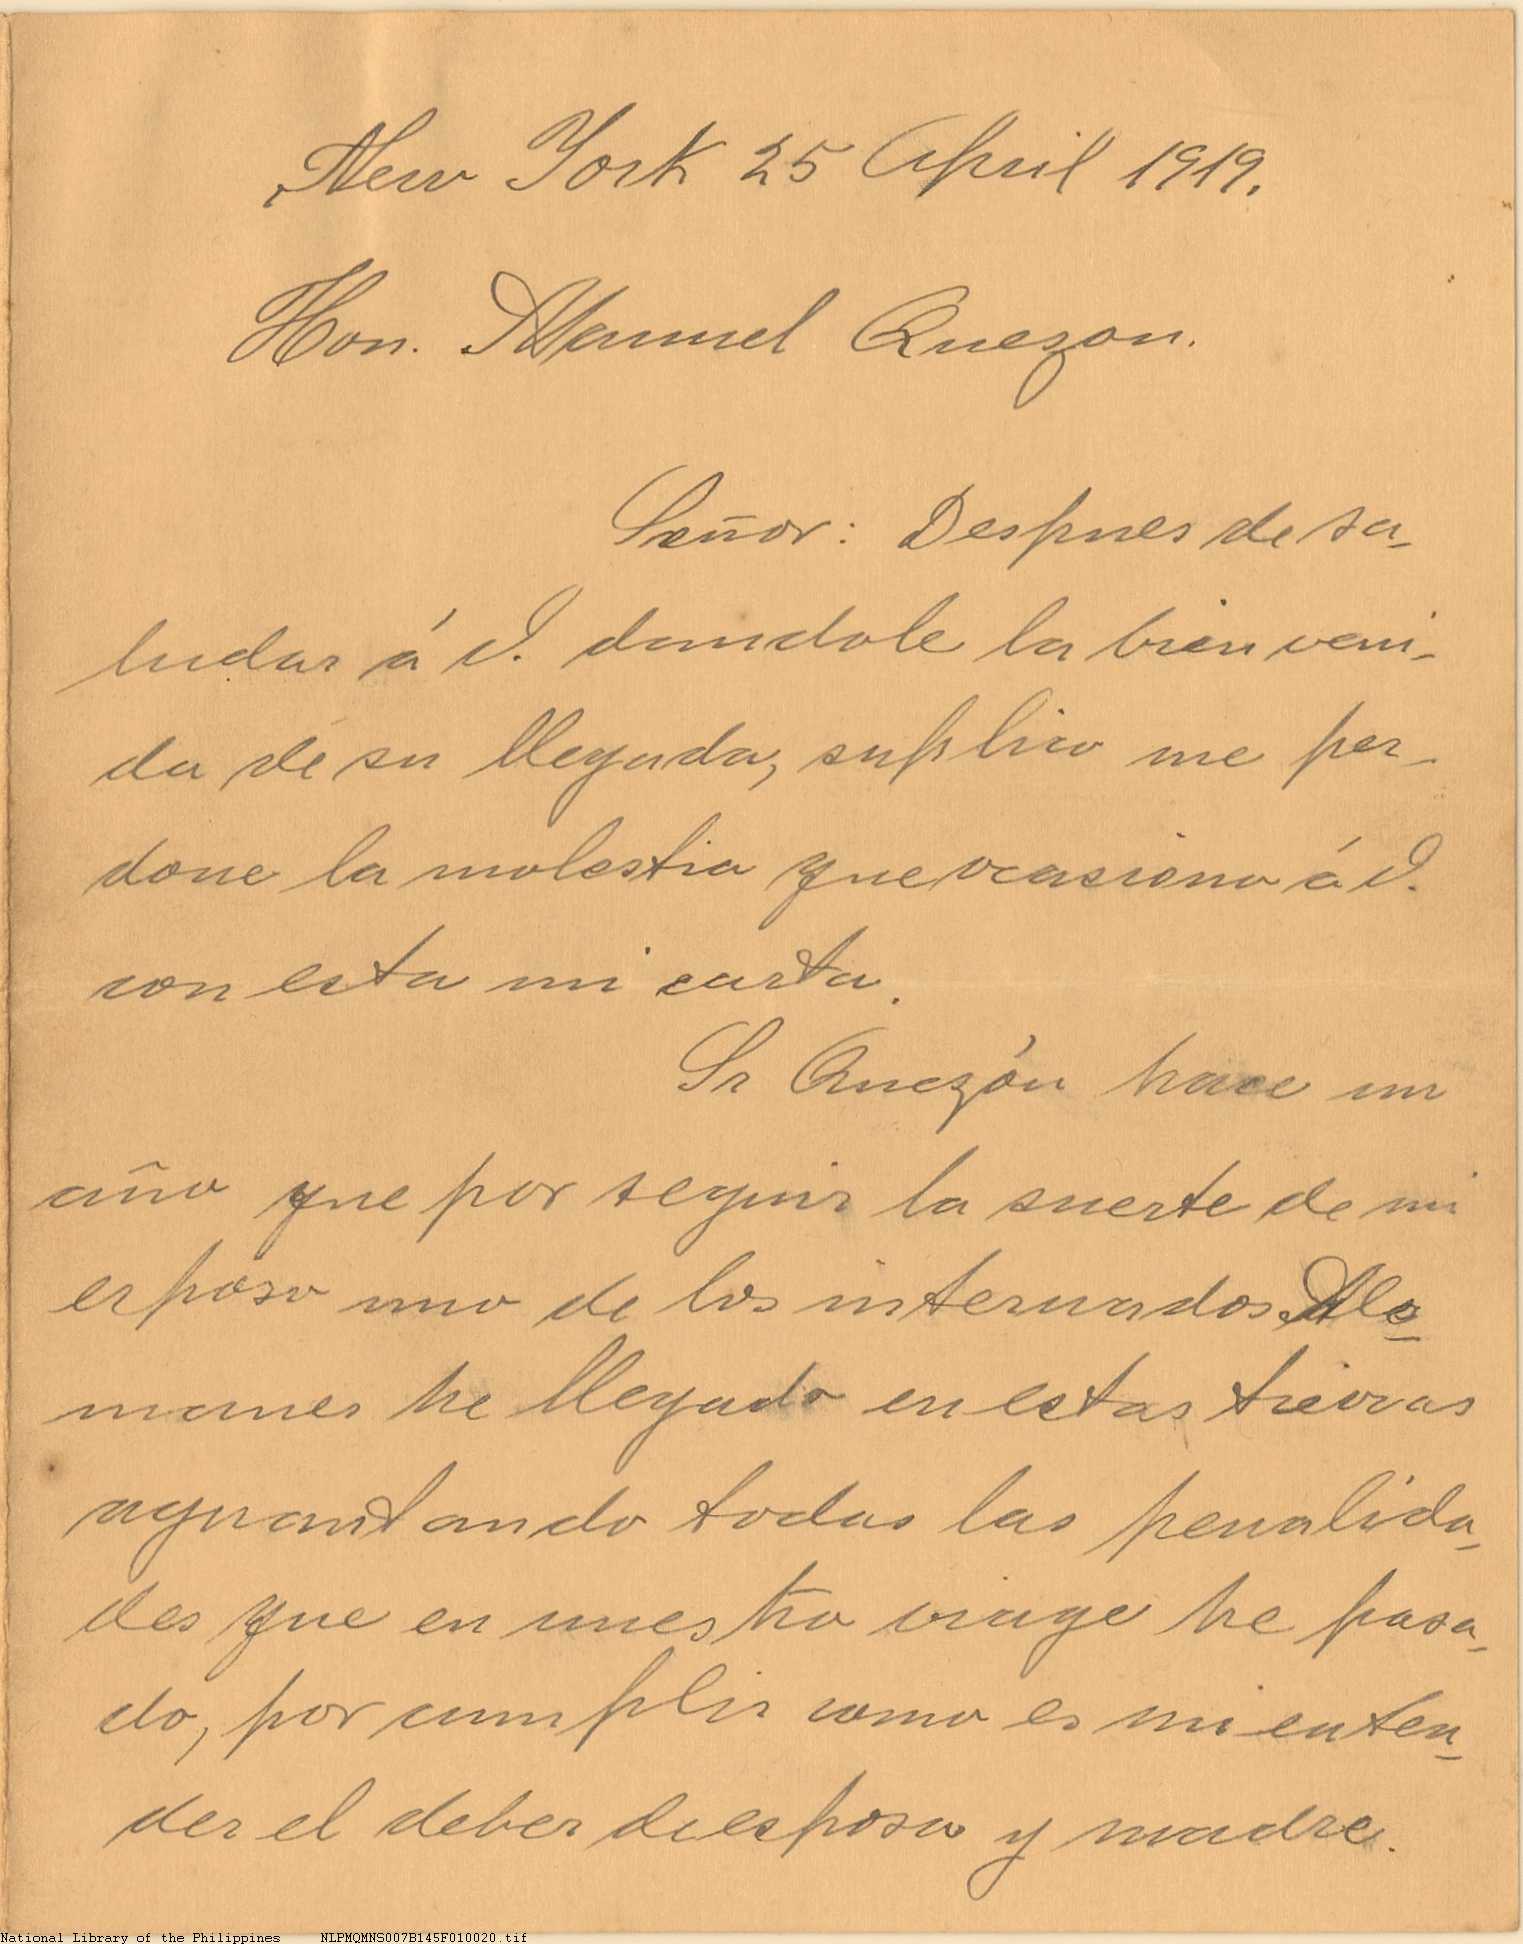 New York 25 April 1919.
Hon. Manuel Quezon.
Señor: Despues de sa-
ludar á V. dandole la bien veni-
da de su llegada, suplico me per-
done la molestia que ocasiono á V.
con esta mi carta.
Sr Quezón hace un
año que por seguir la suerte de mi
esposo uno de los internados Ale-
manes he llegado en estas tierras
aguantando todas las penalida-
des que en nuestro viage he pasa-
do, por cumplir como es mi enten-
der el deber de esposa y madre.
National Library of the Philippines NLPMQMNS007B145F010020.tif